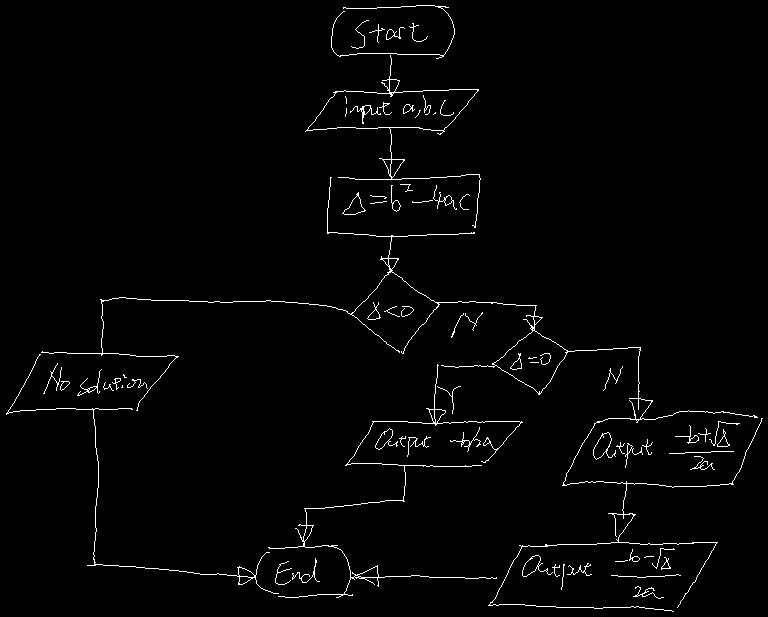 Start
Input a,b,c
Δ=b²-4ac
Δ<0
N
Δ=0
N
Y
No solution
Output -b/2a
Output (-b+√Δ)/2a
Output (-b-√Δ)/2a
End